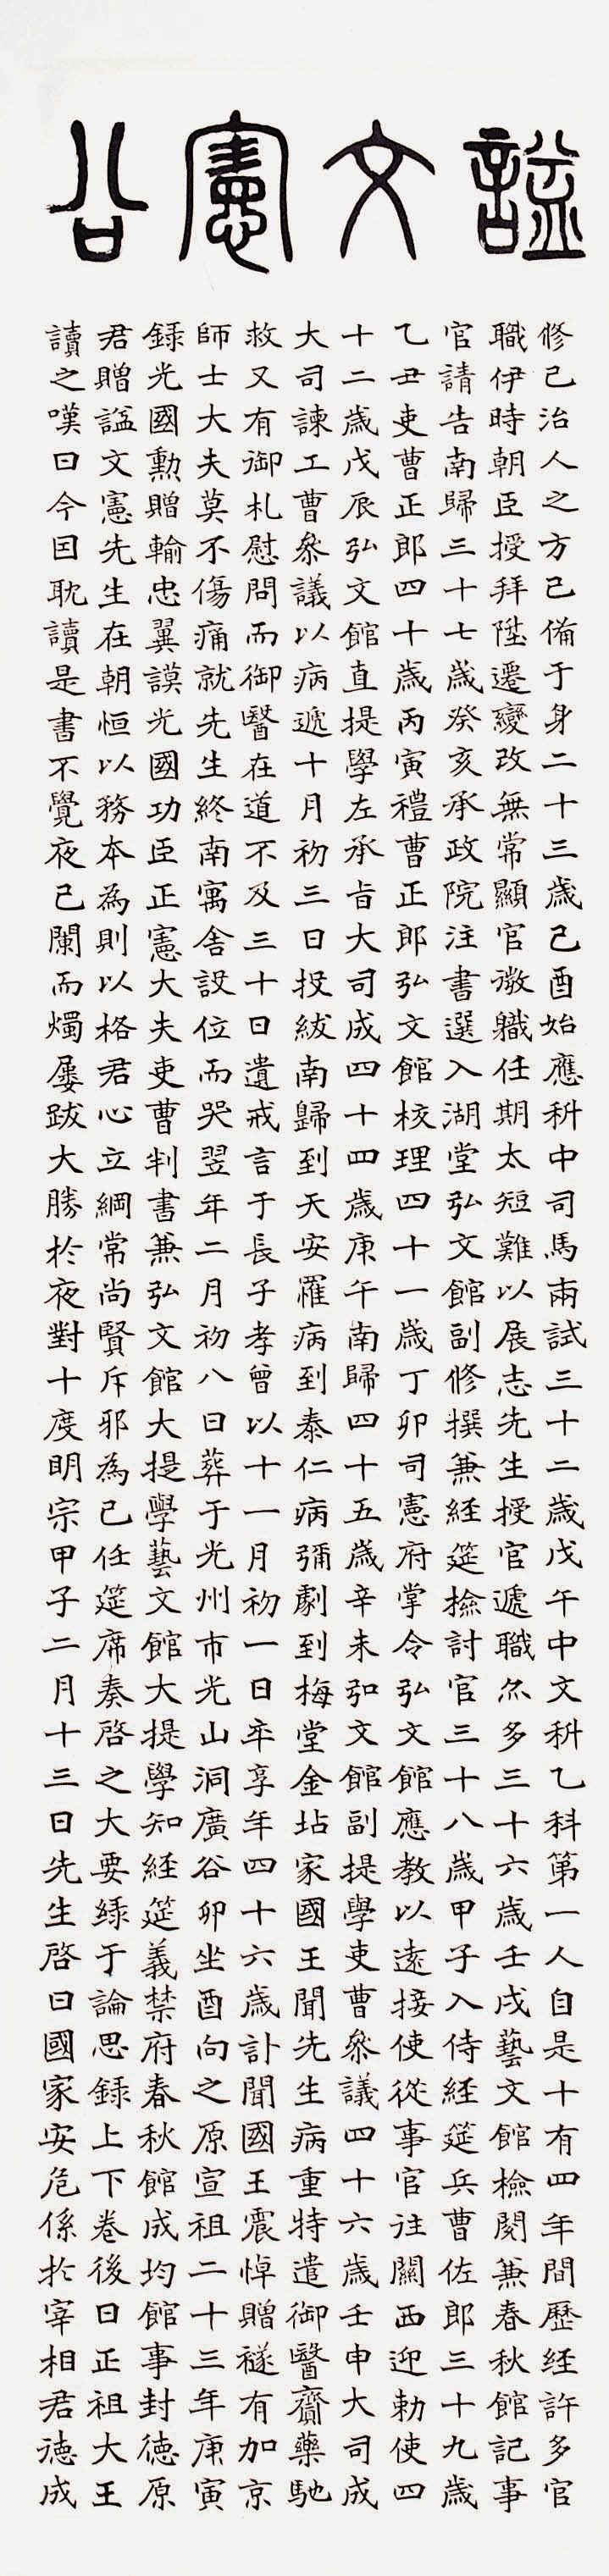 諡文憲公
修己治人之方已備于身二十三歲己酉始應科中司馬兩試三十二歲戊午中文科乙科第一人自是十有四年間歷経許多官
職伊時朝臣授拜陞遷變改無常顯官微職任期太短難以展志先生授官遞職亦多三十六歲壬戌藝文館檢閱兼春秋館記事
官請告南歸三十七歲癸亥承政院注書選入湖堂弘文館副修撰兼経筵檢討官三十八歲甲子入侍経筵兵曹佐郎三十九歲
乙丑吏曹正郎四十歲丙寅禮曹正郎弘文館校理四十一歲丁卯司憲府掌令弘文館應教以遠接使從事官往關西迎勅使四
十二歲戊辰弘文館直提學左承旨大司成四十四歲庚午南歸四十五歲辛未弘文館副提學吏曹參議四十六歲壬申大司成
大司諫工曹參議以病遞十月初三日投紱南歸到天安罹病到泰仁病彌劇到梅堂金坫家國王聞先生病重特遣御醫齎藥馳
救又有御札慰問而御醫在道不及三十日遺戒言于長子孝曾以十一月初一日卒享年四十六歲訃聞國王震悼贈襚有加京
師士大夫莫不傷痛就先生終南寓舍設位而哭翌年二月初八日葬于光州市光山洞廣谷卯坐酉向之原宣祖二十三年庚寅
録光國勳贈輸忠翼謨光國功臣正憲大夫吏曹判書兼弘文館大提學藝文館大提學知経筵義禁府春秋館成均館事封徳原
君贈諡文憲先生在朝恒以務本為則以格君心立綱常尚賢斥邪為己任筵席奏啓之大要緑于論思録上下卷後日正祖大王
讀之嘆曰今因耽讀是書不覺夜已闌而燭屢跋大勝於夜對十度明宗甲子二月十三日先生啓曰國家安危係於宰相君徳成